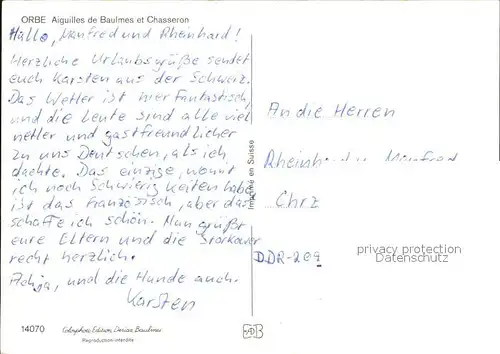 ORBE Aiguilles de Baulmes et Chasseron
Hallo, Manfred und Rheinhard!
Herzliche Urlaubsgrüße sendet
euch Karsten aus der Schweiz.
Das Wetter ist hier fantastisch,
und die Leute sind alle viel
netter und gastfreundlicher
zu uns Deutschen, als ich
dachte. Das einzige, womit
ich noch Schwierigkeiten habe,
ist das Französisch, aber das
schaffe ich schon. Nun grüßt
eure Eltern und die
recht herzlich.
Achja, und die Hunde auch.
Karsten
An die Herren
Manfred
DDR-209
privacy protection
DDR-AnsichtsKarten
Imprimé en Suisse
14070
Colorphoto Edition, Deriaz, Baulmes
Reproduction interdite